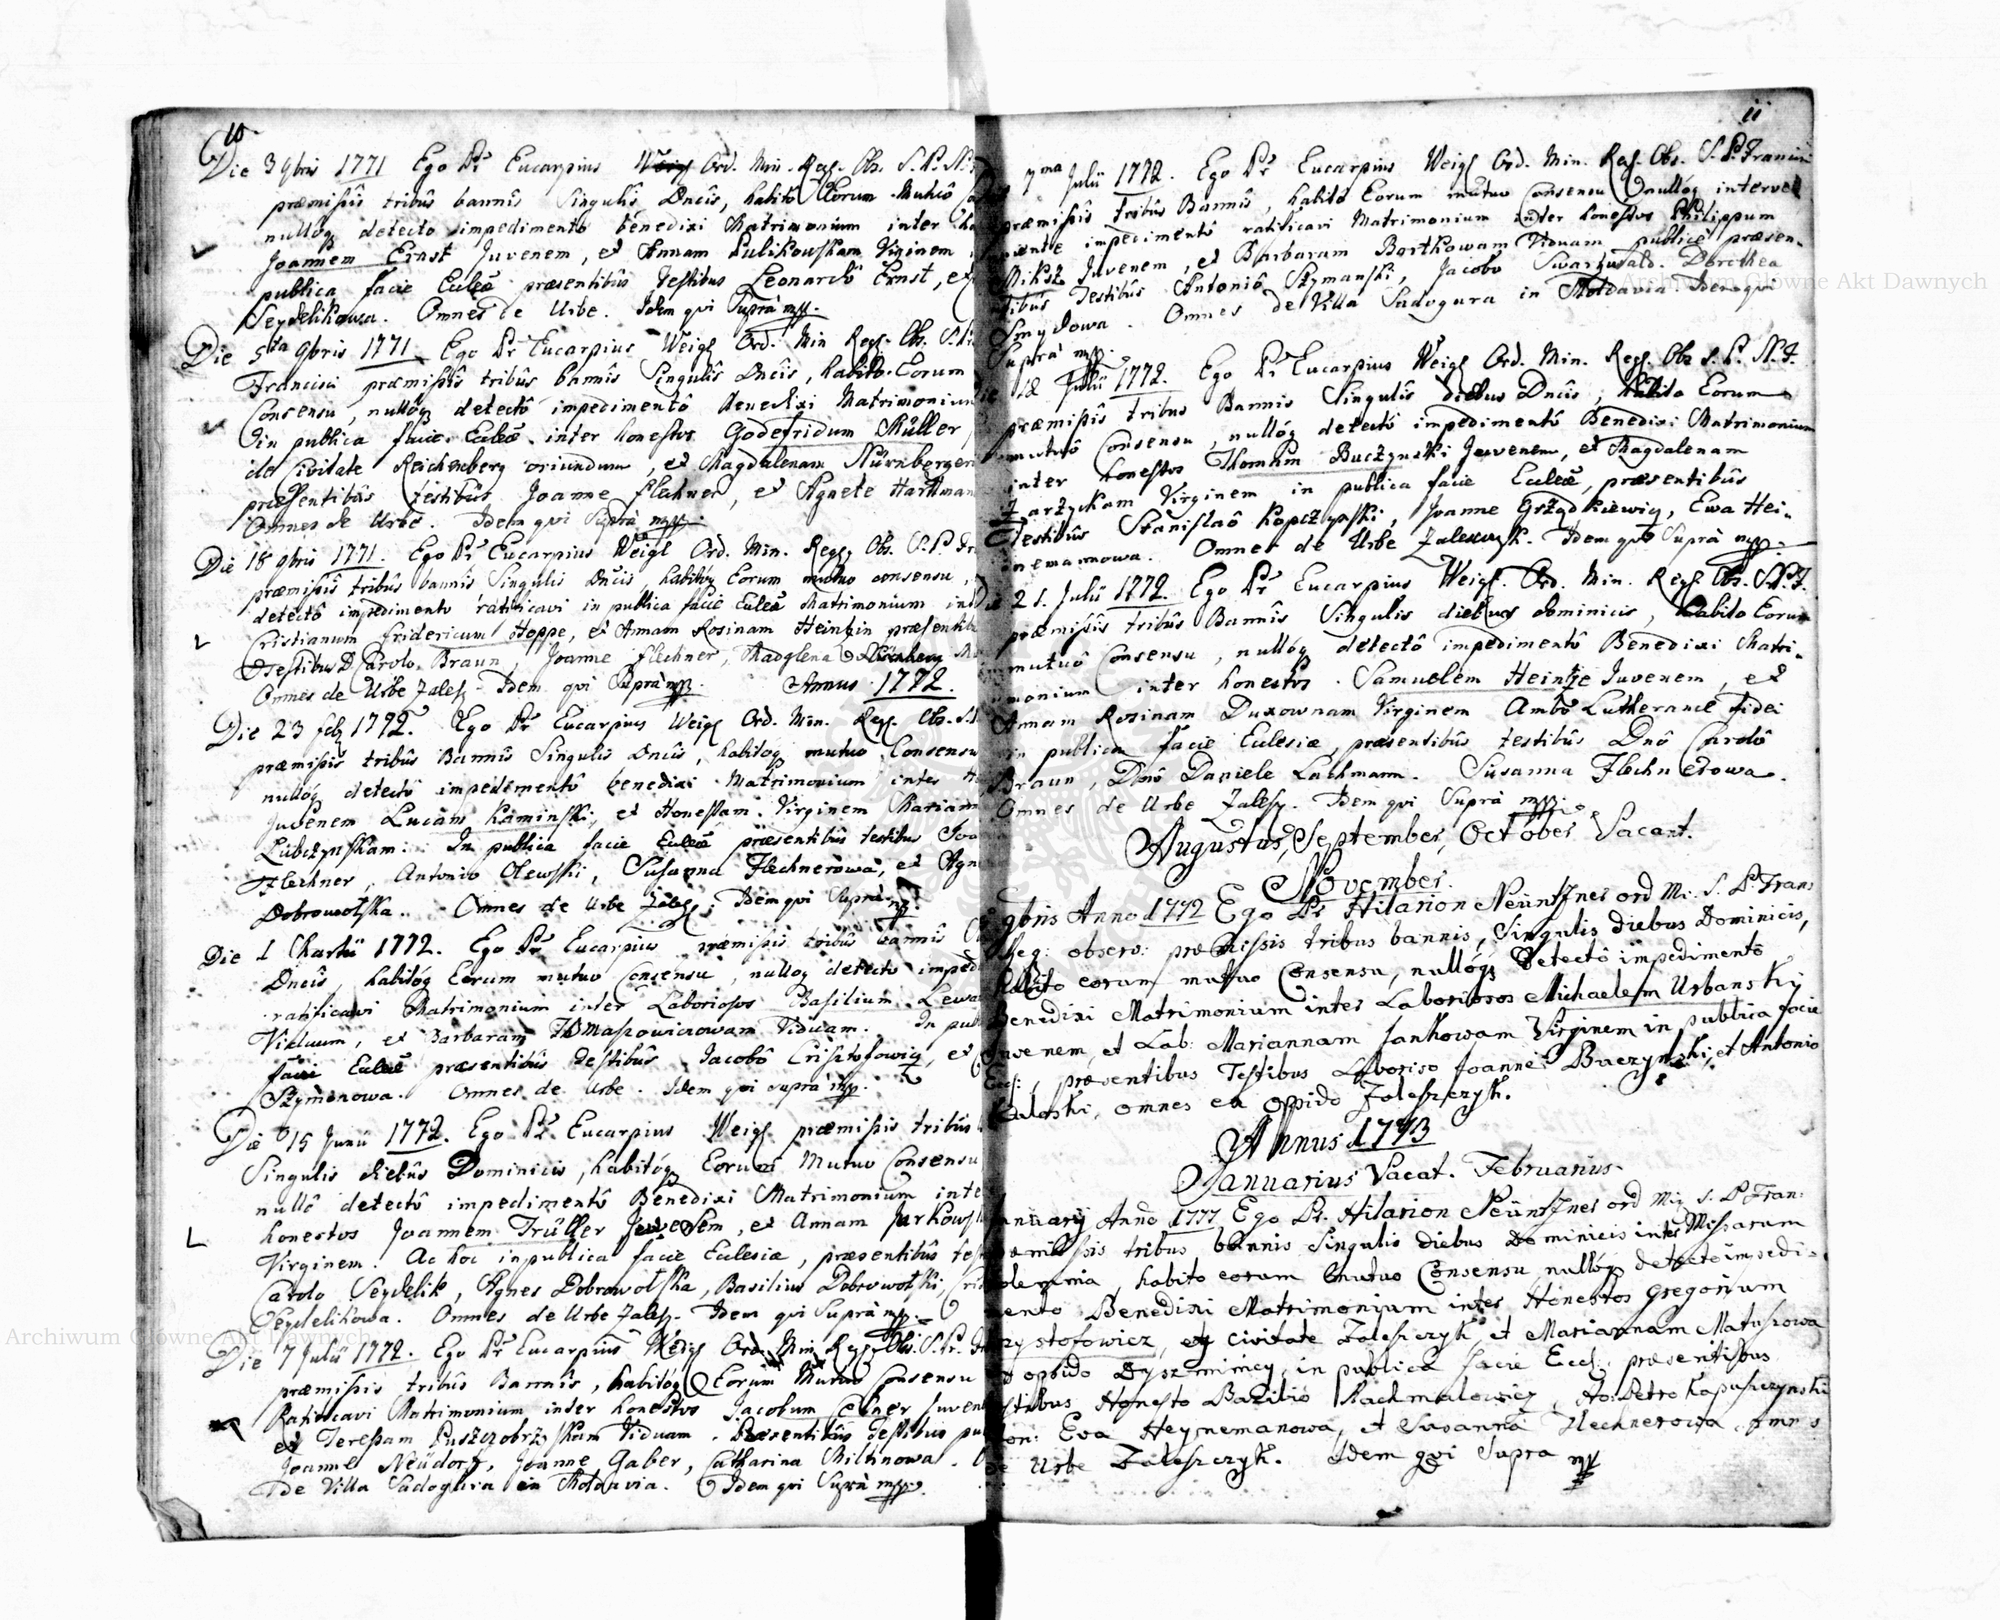 10
Die 3 9bris 1771 Ego Pr Eucarpius Weigl Ord. Min. Reg. Obs. S. P. N.
præmissis tribûs bannis Singulis Dncis, habito Eorum Mutuô
nullóq detectô impedimentô benedixi Matrimonium inter
Joannem Ernst Juvenem, et Annam Kulikowskam Virginem
publica facie Ecclæ præsentibûs Testibus Leonardô Ernst, et
Seydelikowa. Omnes de Urbe. Idem qvi Suprà mpp.
Die 5ta 9bris 1771 Ego Pr Eucarpius Weigl Ord. Min Reg. Obs. S. P.
Francisci præmissis tribûs bannis Singulis Dncis, habito Eorum
Consensu, nullóq detectô impedimentô Benedixi Matrimonium
in publica facie Ecclæ inter honestos Godefridum Müller
de Civitate Reichenberg oriundum, et Magdalenam Nürnbergen
præsentibûs testibûs Joanne Flechner, et Agnete Hartman
Omnes de Urbe. Idem qvi Suprà mpp.
Die 18 9bris 1771. Ego Pr Eucarpius Weigl Ord. Min. Reg. Obs. S. P. Fr
præmissis tribûs bannis Singulis Dncis, habitóq Eorum mutuo consensu,
detectô impedimento ratificavi in publica facie Ecclæ Matrimonium int
Cristianum Fridericum Hoppe, et Annam Rosinam Heintzin præsentib
Testibus D. Carolo Braun, Joanne Flechner, Madglena
Omnes de Urbe Zalesz. Idem qvi Suprà mpp. Annus 1772.
Die 23 feb 1772. Ego Pr Eucarpius Weigl Ord. Min. Reg. Obs. S.
præmissis tribûs Bannis Singulis Dncis, habitóq mutuo Consensu
nullóq detectô impedimentô benedixi Matrimonium inter
Juvenem Lucam Kaminski, et Honestam Virginem Mariann
Lubczynskam. In publica facie Ecclæ præsentibûs testibus Joa
Flechner, Antonio Olewski, Susanna Flechnerowa, et Agn
Dobrowolska. Omnes de Urbe Zalesz. Idem qvi Suprà mpp.
Die 1 Martii 1772. Ego Pr Eucarpius præmissis tribûs bannis
Dncis, habitóq Eorum mutuo Consensu, nulloq detecto imped
ratificavi Matrimonium inter Laboriosos Basilium Lewa
Viduum, et Barbaram Tomaszowiczowam Viduam. In publ
facie Ecclæ præsentibûs Testibûs Jacobô Crisztofowicz, et
Szymonowa. Omnes de Urbe. Idem qvi suprà mpp.
Die 15 Junii 1772. Ego Pr Eucarpius Weigl præmissis tribûs
Singulis diebûs Dominicis, habitóq Eorum Mutuo Consensu
nullô detectô impedimentô Benedixi Matrimonium inte
honestos Joannem Trüller Juvenem, et Annam Jurkowsk
L Virginem. Ac hoc in publica facie Ecclesiæ, præsentibûs tes
Carolo Seydelik, Agnes Dobrowolska, Basilius Dobrowolski,
Seydelikowa. Omnes de Urbe Zalesz. Idem qvi Suprà mpp.
Die 7 Julii 1772. Ego Pr Eucarpius Weigl Ord. Min. Reg. Obs. S. P.
præmissis tribûs Bannis, habitóq Eorum Mutuo Consensu
Ratificavi Matrimonium inter honestos Jacobum Ebner Juven
et Teressam Viduam. Præsentibûs Testibus pub
Joanne Neudorf, Joanne Gaber, Catharina Miltinowa.
de Villa Sadoghra in Moldavia. Idem qvi Suprà mpp.
11
7ma Julii 1772. Ego Pr Eucarpius Weigl Ord. Min. Reg. Obs. S. P. Francisci
præmissis tribûs Bannis, habitô Eorum mutuo Consensu nullóq interve
niente impedimentô ratificavi Matrimonium inter honestos Philippum
Miksz Juvenem, et Barbaram Bortkowam Viduam publicè præsen-
tibus Testibûs Antoniô Szymanski, Jacobo Swarzwald. Dorothea
Smydowa. Omnes de Villa Sadogura in Moldavia. Idem qui
Suprà mpp.
Die 12 Julii 1772. Ego Pr Eucarpius Weigl Ord. Min. Reg. Obs S. P. N. F.
præmissis tribus Bannis Singulis diebus Dncis, habito Eorum
mutuô Consensu, nullóq detectô impedimentô Benedixi Matrimonium
inter honestos Thomam Buczynski Juvenem, et Magdalenam
Zarzyckam Virginem in publica facie Ecclæ, præsentibûs
testibûs Stanislaô Kopczynski, Joanne Grządkiewicz, Ewa Hei-
nemannowa. Omnes de Urbe Zaleszczyk. Idem qvi Suprà mpp.
Die 21. Julii 1772. Ego Pr Eucarpius Weigl. Ord. Min. Reg. Obs. S. P. F.
præmissis tribûs Bannis Singulis diebus dominicis, habito Eorum
mutuô Consensu, nullóq detectô impedimentô Benedixi Matri-
monium inter honestos Samuelem Heintze Juvenem, et
Annam Rosinam Duxownam Virginem Ambo Lutheranæ Fidei
in publica facie Eclesiæ, præsentibûs testibûs Dnô Carolô
Braun, Dnô Daniele Lachmann. Susanna Flechnerowa.
Omnes de Urbe Zalesz. Idem qvi Suprà mpp.
Augustus, September, October Vacant.
November.
9bris Anno 1772 Ego Pr Hilarion ord Mi: S. P. Fran:
Reg: observ: præmissis tribus bannis, Singulis diebus Dominicis,
habito eorum mutuo Consensu, nullóq Detectô impedimentô
Benedixi Matrimonium inter Laboriosos Michaelem Urbansky
Juvenem, et Lab: Mariannam Jankowam Virginem in publica facie
Eccl:, præsentibus Testibus Laborioso Joanne Buczynski, et Antonio
omnes ex oppido Zaleszczyk.
Annus 1773
Januarius Vacat. Februarius
Januarij Anno 1777 Ego Pr. Hilarion ord Mi: S. P. Fran:
præmissis tribus bannis Singulis diebus Dominicis inter Missarum
solemnia, habito eorum mutuo Consensu nullóq detecto impedi-
mento Benedixi Matrimonium inter Honestos Gregorium
Krzystofowicz, ex civitate Zaleszczyk, et Mariannam Matuszowa
ex oppido in publica facie Eccl: præsentibus
testibus Honesto Bazilio Rachmalowicz, Ho: Petro Kapuszczynski
Hon: Eva Heynemanowa, et Susanna Flechnerowa. omnes
de Urbe Zaleszczyk. Idem qvi Supra mp
Archiwum Główne Akt Dawnych
Archiwum Główne Akt Dawnych